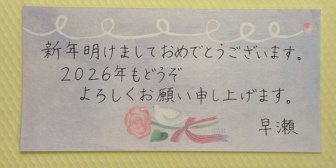 新年明けましておめでとうございます。
2026年もどうぞ
よろしくお願い申し上げます。
早瀬